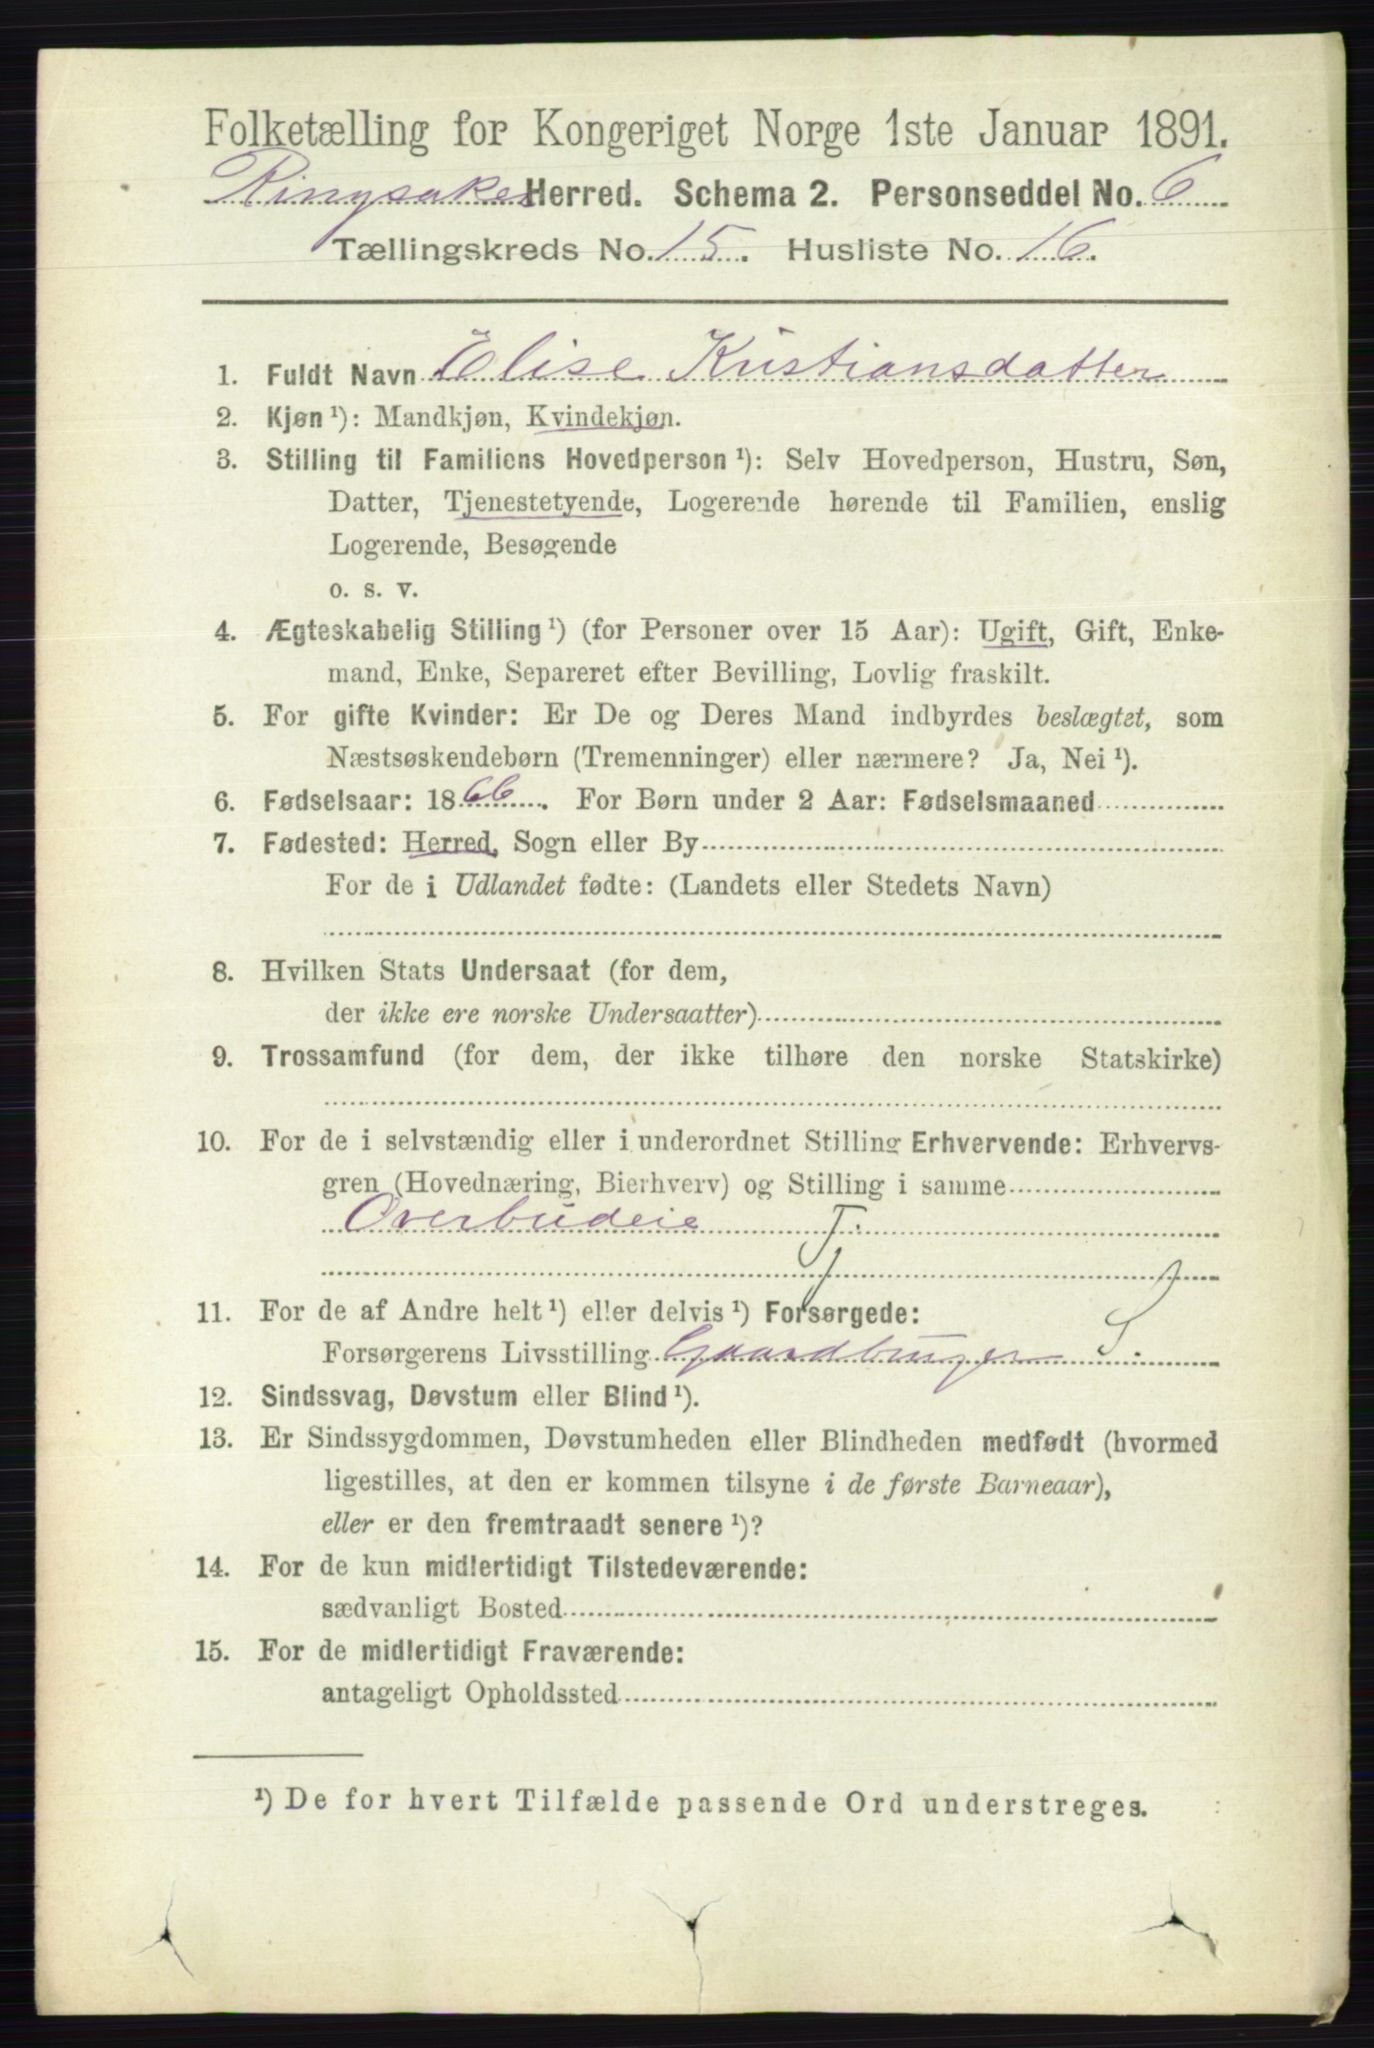 Folketælling for Kongeriget Norge 1ste Januar 1891.
Ringsaker Herred. Schema 2. Personseddel No. 6
Tællingskreds No. 15. Husliste No. 16.
1. Fuldt Navn Elise Kristiansdatter
2. Kjøn ¹): Mandkjøn, Kvindekjøn.
3. Stilling til Familiens Hovedperson ¹): Selv Hovedperson, Hustru, Søn,
Datter, Tjenestetyende, Logerende hørende til Familien, enslig
Logerende, Besøgende
o. s. v.
4. Ægteskabelig Stilling ¹) (for Personer over 15 Aar): Ugift, Gift, Enke-
mand, Enke, Separeret efter Bevilling, Lovlig fraskilt.
5. For gifte Kvinder: Er De og Deres Mand indbyrdes beslægtet, som
Næstsøskendebørn (Tremenninger) eller nærmere? Ja, Nei ¹).
6. Fødselsaar: 1866. For Børn under 2 Aar: Fødselsmaaned
7. Fødested: Herred, Sogn eller By
For de i Udlandet fødte: (Landets eller Stedets Navn)
8. Hvilken Stats Undersaat (for dem,
der ikke ere norske Undersaatter)
9. Trossamfund (for dem, der ikke tilhøre den norske Statskirke)
10. For de i selvstændig eller i underordnet Stilling Erhvervende: Erhvervs-
gren (Hovednæring, Bierhverv) og Stilling i samme
Overbudeie T.
11. For de af Andre helt ¹) eller delvis ¹) Forsørgede:
Forsørgerens Livsstilling Gaardbruger S.
12. Sindssvag, Døvstum eller Blind ¹).
13. Er Sindssygdommen, Døvstumheden eller Blindheden medfødt (hvormed
ligestilles, at den er kommen tilsyne i de første Barneaar),
eller er den fremtraadt senere ¹)?
14. For de kun midlertidigt Tilstedeværende:
sædvanligt Bosted
15. For de midlertidigt Fraværende:
antageligt Opholdssted
¹) De for hvert Tilfælde passende Ord understreges.